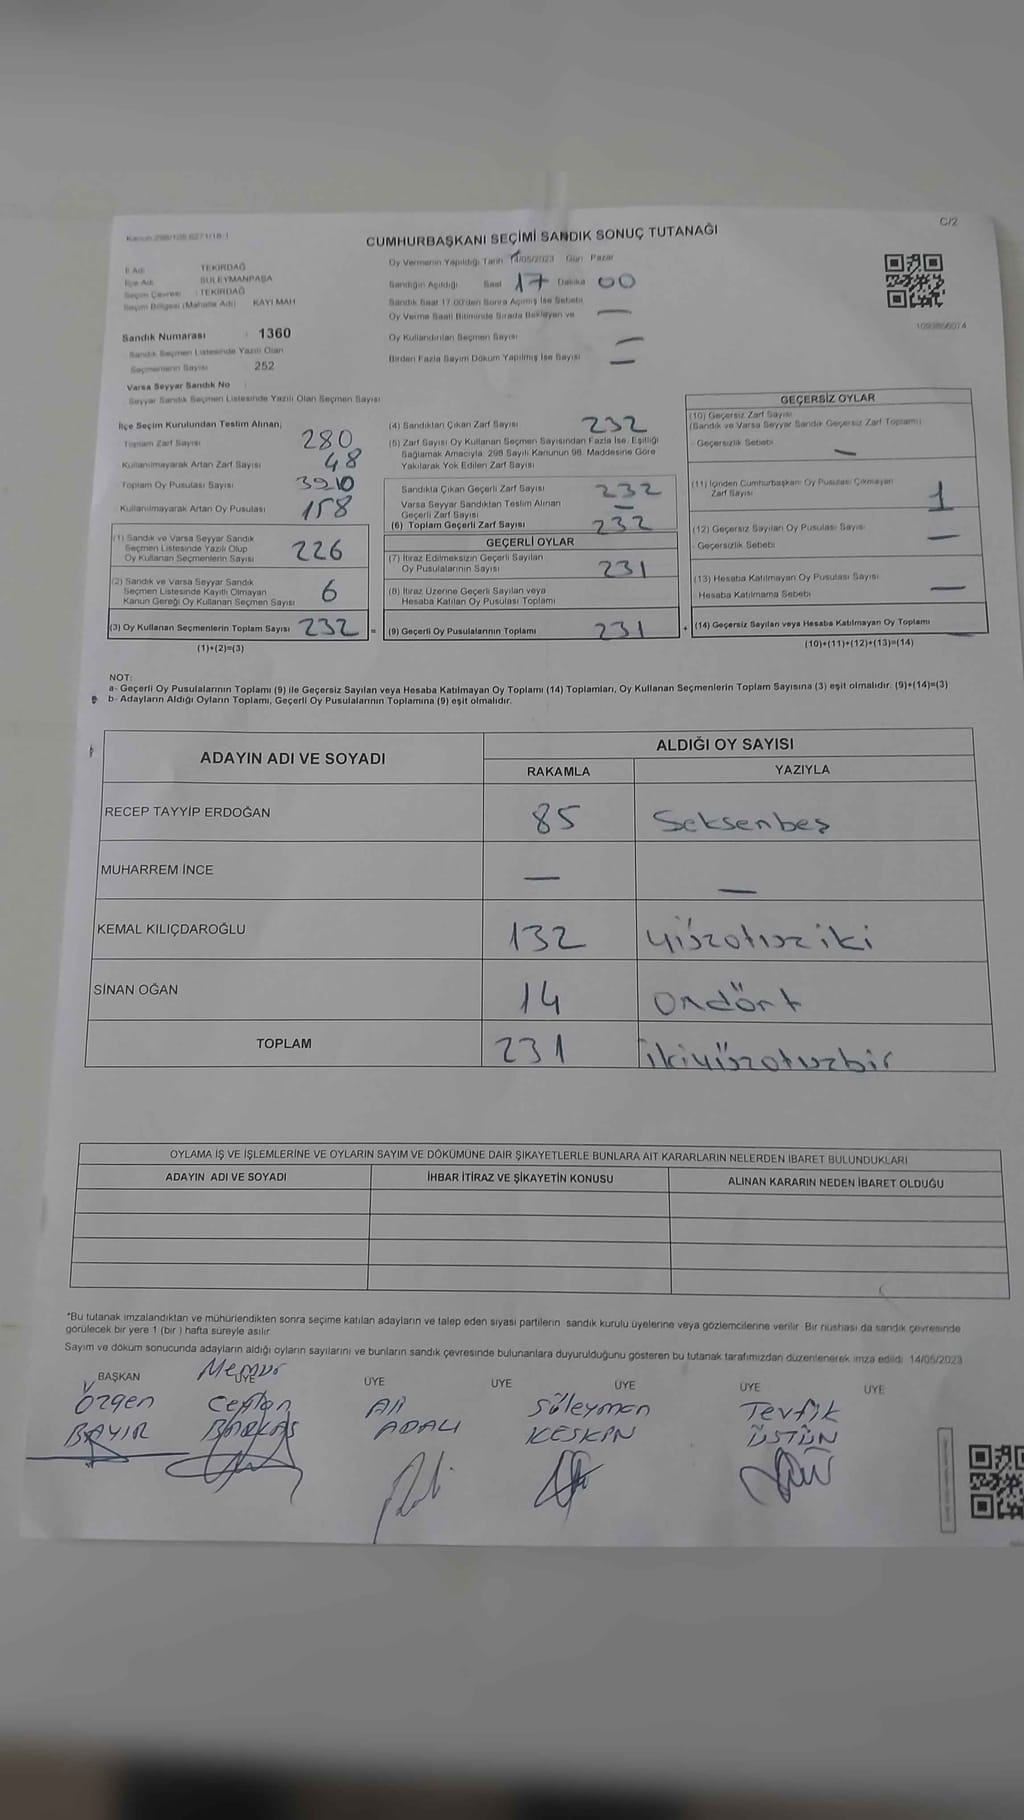 C/2
CUMHURBAŞKANI SEÇİMİ SANDIK SONUÇ TUTANAĞI
İl Adı TEKİRDAĞ
İlçe Adı SÜLEYMANPAŞA
Seçim Çevresi : TEKİRDAĞ
Seçim Bölgesi (Mahalle Adı) KAYI MAH
Sandık Numarası : 1360
Sandık Seçmen Listesinde Yazılı Olan
Seçmenlerin Sayısı 252
Varsa Seyyar Sandık No
Seyyar Sandık Seçmen Listesinde Yazılı Olan Seçmen Sayısı
Oy Vermenin Yapıldığı Tarih 14/05/2023 Gün Pazar
Sandığın Açıldığı Saat 17 Dakika 00
Sandık Saat 17.00'den Sonra Açılmış İse Sebebi
Oy Verme Saati Bitiminde Sırada Bekleyen ve —
Oy Kullandırılan Seçmen Sayısı —
Birden Fazla Sayım Döküm Yapılmış İse Sayısı —
1093856074
İlçe Seçim Kurulundan Teslim Alınan;
Toplam Zarf Sayısı 280
Kullanılmayarak Artan Zarf Sayısı 48
Toplam Oy Pusulası Sayısı
Kullanılmayarak Artan Oy Pusulası 158
(1) Sandık ve Varsa Seyyar Sandık
Seçmen Listesinde Yazılı Olup
Oy Kullanan Seçmenlerin Sayısı 226
(2) Sandık ve Varsa Seyyar Sandık
Seçmen Listesinde Kayıtlı Olmayan
Kanun Gereği Oy Kullanan Seçmen Sayısı 6
(3) Oy Kullanan Seçmenlerin Toplam Sayısı 232 =
(1)+(2)=(3)
(4) Sandıktan Çıkan Zarf Sayısı 232
(5) Zarf Sayısı Oy Kullanan Seçmen Sayısından Fazla İse, Eşitliği
Sağlamak Amacıyla 298 Sayılı Kanunun 98. Maddesine Göre
Yakılarak Yok Edilen Zarf Sayısı
Sandıkta Çıkan Geçerli Zarf Sayısı 232
Varsa Seyyar Sandıktan Teslim Alınan
Geçerli Zarf Sayısı —
(6) Toplam Geçerli Zarf Sayısı 232
GEÇERLİ OYLAR
(7) İtiraz Edilmeksizin Geçerli Sayılan
Oy Pusulalarının Sayısı 231
(8) İtiraz Üzerine Geçerli Sayılan veya
Hesaba Katılan Oy Pusulası Toplamı
(9) Geçerli Oy Pusulalarının Toplamı 231 +
GEÇERSİZ OYLAR
(10) Geçersiz Zarf Sayısı
(Sandık ve Varsa Seyyar Sandık Geçersiz Zarf Toplamı)
- Geçersizlik Sebebi —
(11) İçinden Cumhurbaşkanı Oy Pusulası Çıkmayan
Zarf Sayısı 1
(12) Geçersiz Sayılan Oy Pusulası Sayısı —
- Geçersizlik Sebebi
(13) Hesaba Katılmayan Oy Pusulası Sayısı
Hesaba Katılmama Sebebi —
(14) Geçersiz Sayılan veya Hesaba Katılmayan Oy Toplamı —
(10)+(11)+(12)+(13)=(14)
NOT:
a- Geçerli Oy Pusulalarının Toplamı (9) ile Geçersiz Sayılan veya Hesaba Katılmayan Oy Toplamı (14) Toplamları, Oy Kullanan Seçmenlerin Toplam Sayısına (3) eşit olmalıdır. (9)+(14)=(3)
b- Adayların Aldığı Oyların Toplamı, Geçerli Oy Pusulalarının Toplamına (9) eşit olmalıdır.
ADAYIN ADI VE SOYADI ALDIĞI OY SAYISI
RAKAMLA YAZIYLA
RECEP TAYYİP ERDOĞAN 85 Seksenbeş
MUHARREM İNCE — —
KEMAL KILIÇDAROĞLU 132 yüzotuziki
SİNAN OĞAN 14 Ondört
TOPLAM 231 ikiyüzotuzbir
OYLAMA İŞ VE İŞLEMLERİNE VE OYLARIN SAYIM VE DÖKÜMÜNE DAİR ŞİKAYETLERLE BUNLARA AİT KARARLARIN NELERDEN İBARET BULUNDUKLARI
ADAYIN ADI VE SOYADI İHBAR İTİRAZ VE ŞİKAYETİN KONUSU ALINAN KARARIN NEDEN İBARET OLDUĞU
*Bu tutanak imzalandıktan ve mühürlendikten sonra seçime katılan adayların ve talep eden siyasi partilerin sandık kurulu üyelerine veya gözlemcilerine verilir. Bir nüshası da sandık çevresinde
görülecek bir yere 1 (bir ) hafta süreyle asılır.
Sayım ve döküm sonucunda adayların aldığı oyların sayılarını ve bunların sandık çevresinde bulunanlara duyurulduğunu gösteren bu tutanak tarafımızdan düzenlenerek imza edildi. 14/05/2023
BAŞKAN Memur ÜYE ÜYE ÜYE ÜYE ÜYE ÜYE
Özgen Ceylan Ali Süleyman Tevfik
BAYIR BARLAS ADALI KESKİN ÜSTÜN